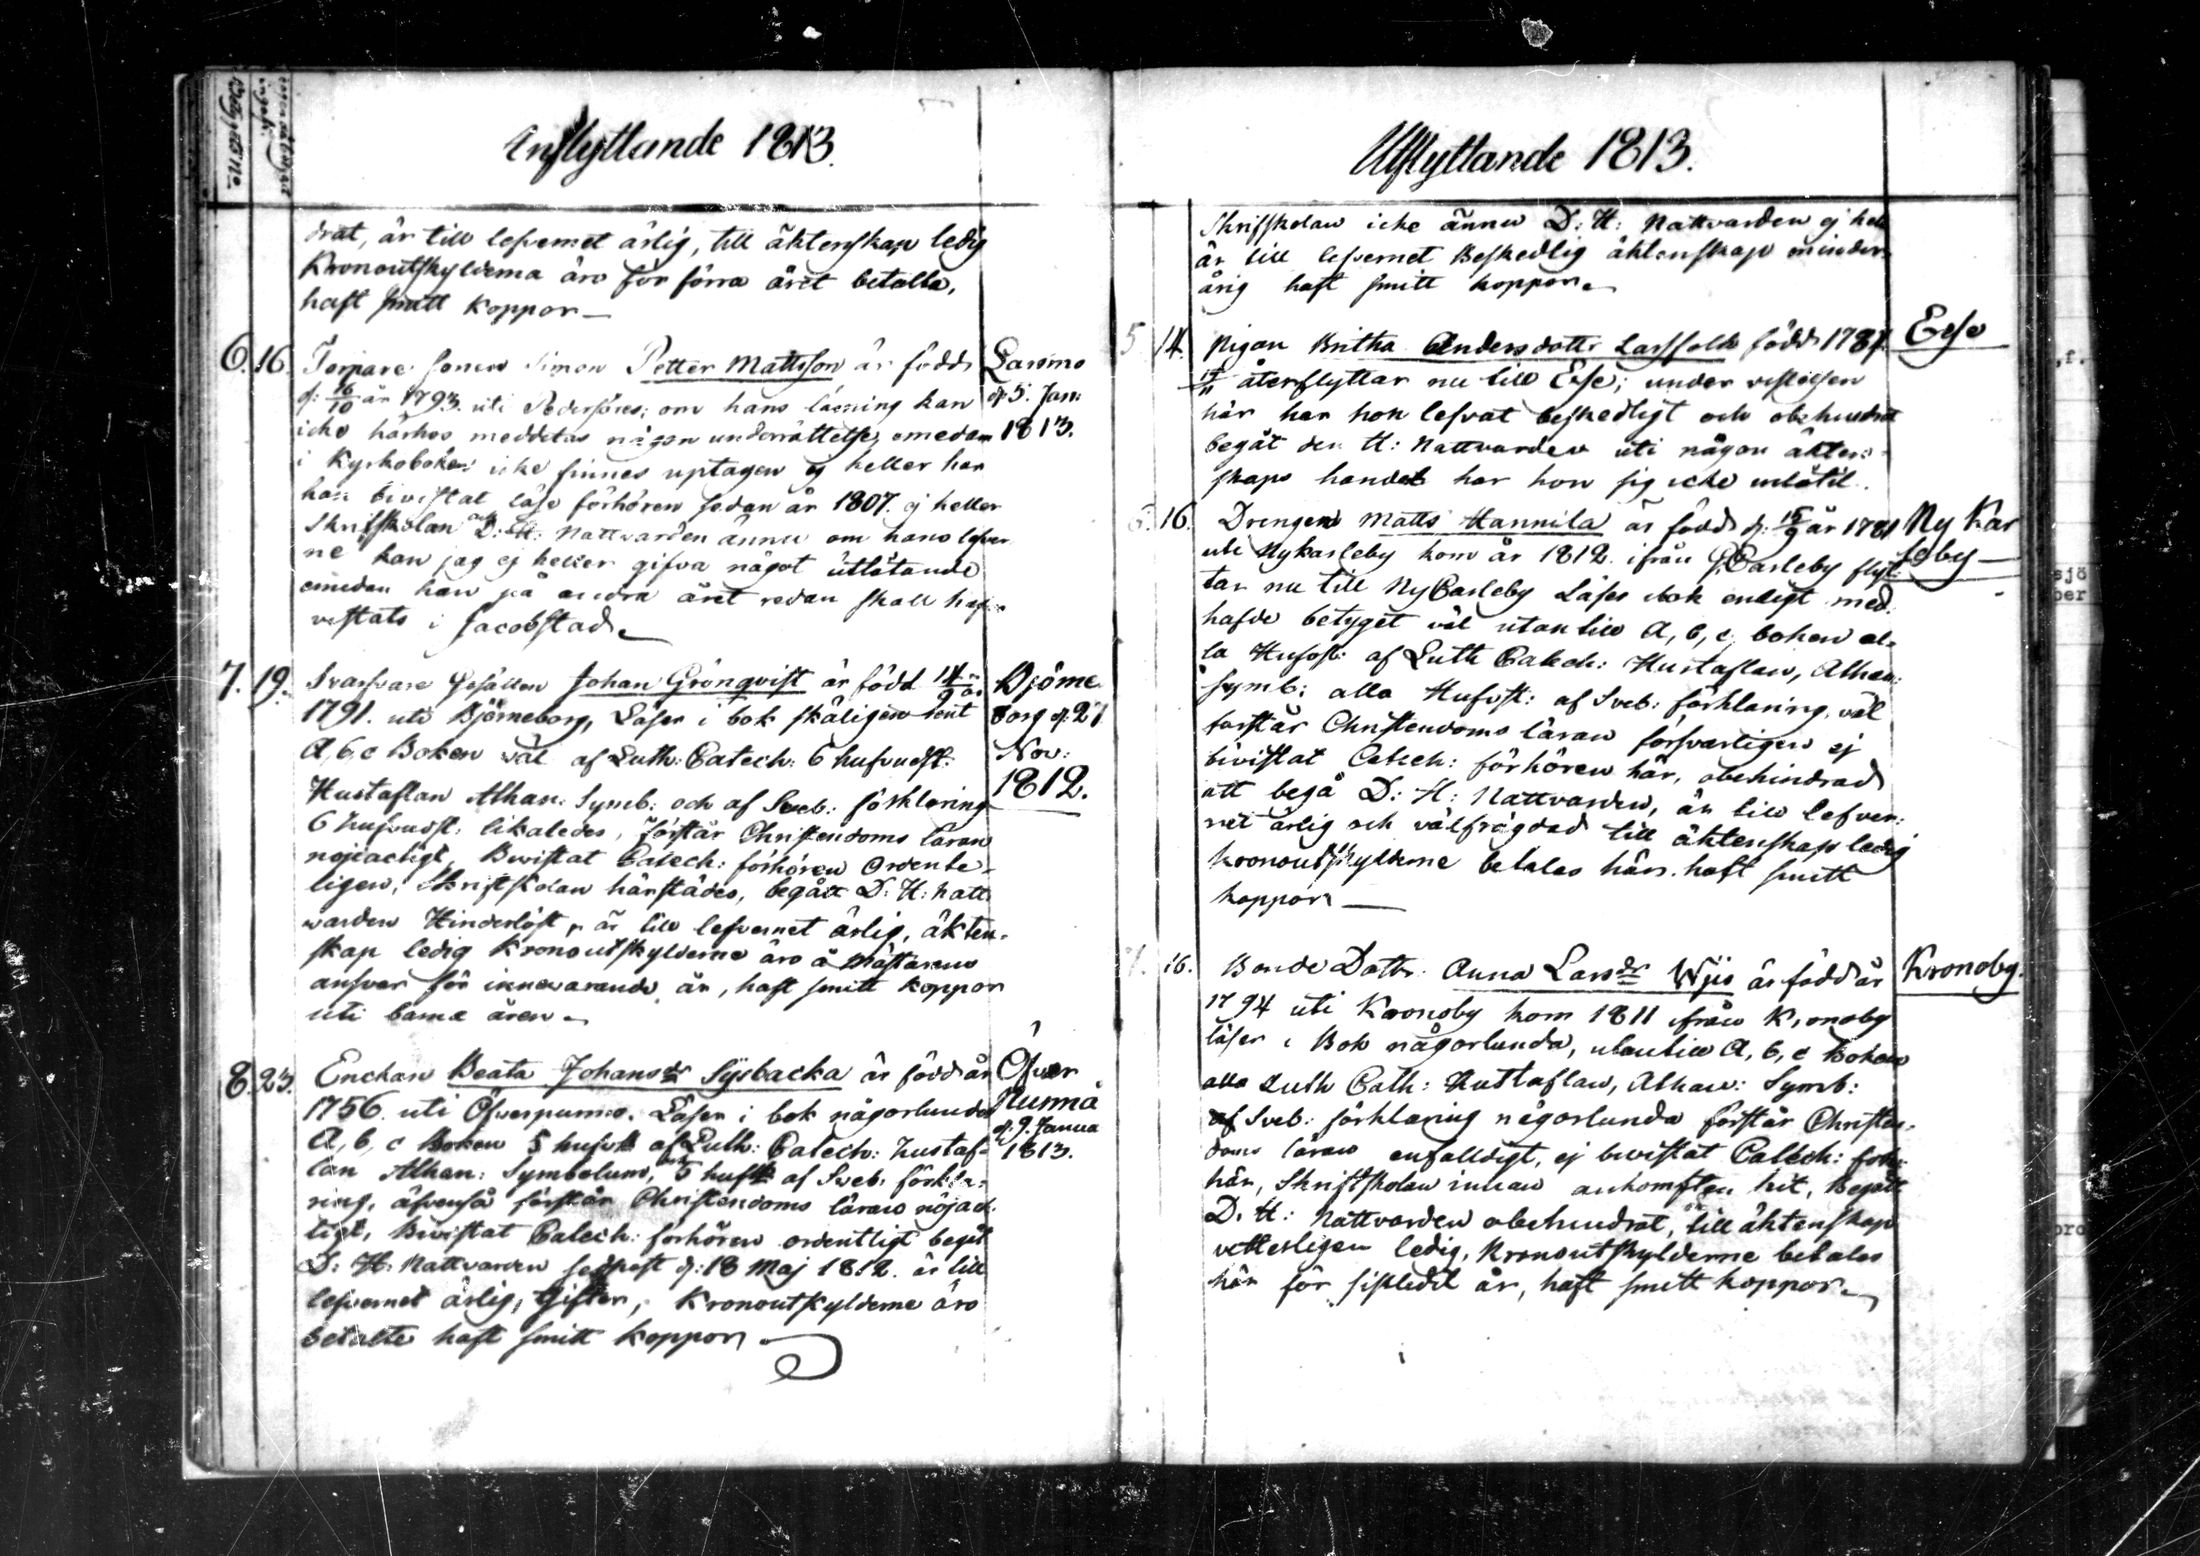 Inflyttande 1813.
drat, är till lefvernet ärlig, till äktenskap ledig
Kronoutskylderna äro för förra året betalta,
haft smitt koppor —
6. 16. Torpare Sonen Simon Petter Mattsson är född Larsmo
d: 16/10 år 1793. uti Pedersöres; om hans läsning kan d. 5. Jan:
icke härhos meddelas någon underrättelse, emedan 1813.
i Kyrkoboken icke finnes uptagen ej heller har
han bivistat läse förhören sedan år 1807. ej heller
Skriftskolan och D: H: Nattvarden ännu om hans lefver
ne kan jag ej heller gifva något utlåtande
emedan han på andra året redan skall hafva
vistats i Jacobstad
7. 19. Svarfvare Gesällen Johan Grönqvist är född 14/9 år Björne
1791. uti Björneborg, Läser i bok skäligen rent borg d. 27
A, b, c Boken väl af Luth: Catech: 6 hufvudst: Nov:
Hustaflan Athan: Symb: och af Sveb: förklaring 1812.
6 hufvudst: likaledes, förstår Christendoms läran
nöjacktigt, Bivistat Catech: förhören Ordente-
ligen, Skriftskolan härstädes, begått D: H: natt
varden Hinderlöst, är till lefvernet ärlig, äkten-
skap ledig Kronoutskylderne äro å Mästarens
ansvar för innevarande år, haft smitt koppor
uti barna åren
8. 23. Enckan Beata Johansdr Sysbacka är född år Öfver
1756. uti Öfverpurmo. Läser i bok någorlunda Purmo
A, b, c Boken 5 hufvst af Luth: Catech: Hustaf- d: 9. Janua
lan Athan: Symbolum, och 5 hufst af Sveb: förkla- 1813.
ring, äfvenså förstår Christendoms läran nöjack
tigt, Bivistat Catech: förhören ordentligt begåt
D: H: Nattvarden sednast d: 18 Maj 1812. är till
lefvernet ärlig, Gifter, Kronoutskylderne äro
betalte haft smitt koppor
Utflyttande 1813.
Skriftskolan icke ännu D: H: Nattvarden ej hell
är till lefvernet Beskedlig äktenskap minder-
årig haft smitt koppor
5 14. Pigan Britha Andersdotter Larssolk född 1787 Esse
återflyttar nu till Esse; under vistelsen
här har hon lefvat beskedligt och obehindrat
begåt den H: Nattvarden uti någon äkten-
skaps handel har hon sig icke inlåtit.
6. 16. Drengen Matts Hannila är född d: 15/9 år 1781 Ny Kar
uti Nykarleby kom år 1812. ifrån G. Carleby flyt- leby —
tar nu till Ny Carleby Läser i bok enligt med
hafde betyget väl utantill A, b, c, boken al-
la Hufvst: af Luth Catech: Hustaflan, Athan:
Symb: alla Hufvst: af Sveb: förklaring, väl
förstår Christendoms läran försvarligen ej
bivistat Catech: förhören här, obehindrad
att begå D: H: Nattvarden, är till lefver-
net ärlig och välfrägdad till äktenskap ledig
kronoutskylderne betales här. haft smitt
koppor —
7. 16. Bonde Dottr. Anna Larsdr Wiis är född år Kronoby.
1794 uti Kronoby kom 1811 ifrån Kronoby
läser i Bok någorlunda, utantill A, b, c Boken
alla Luth Cath: Hustaflan, Athan: Symb:
af Sveb: förklaring någorlunda förstår Christen-
doms läran enfalldigt, ej bivistat Catech: förhör
här, Skriftskolan innan ankomsten hit, Begått
D. H: Nattvarden obehindrat, är till äktenskap
vetterligen ledig, Kronoutskylderne betales
här för sistledit år, haft smitt koppor